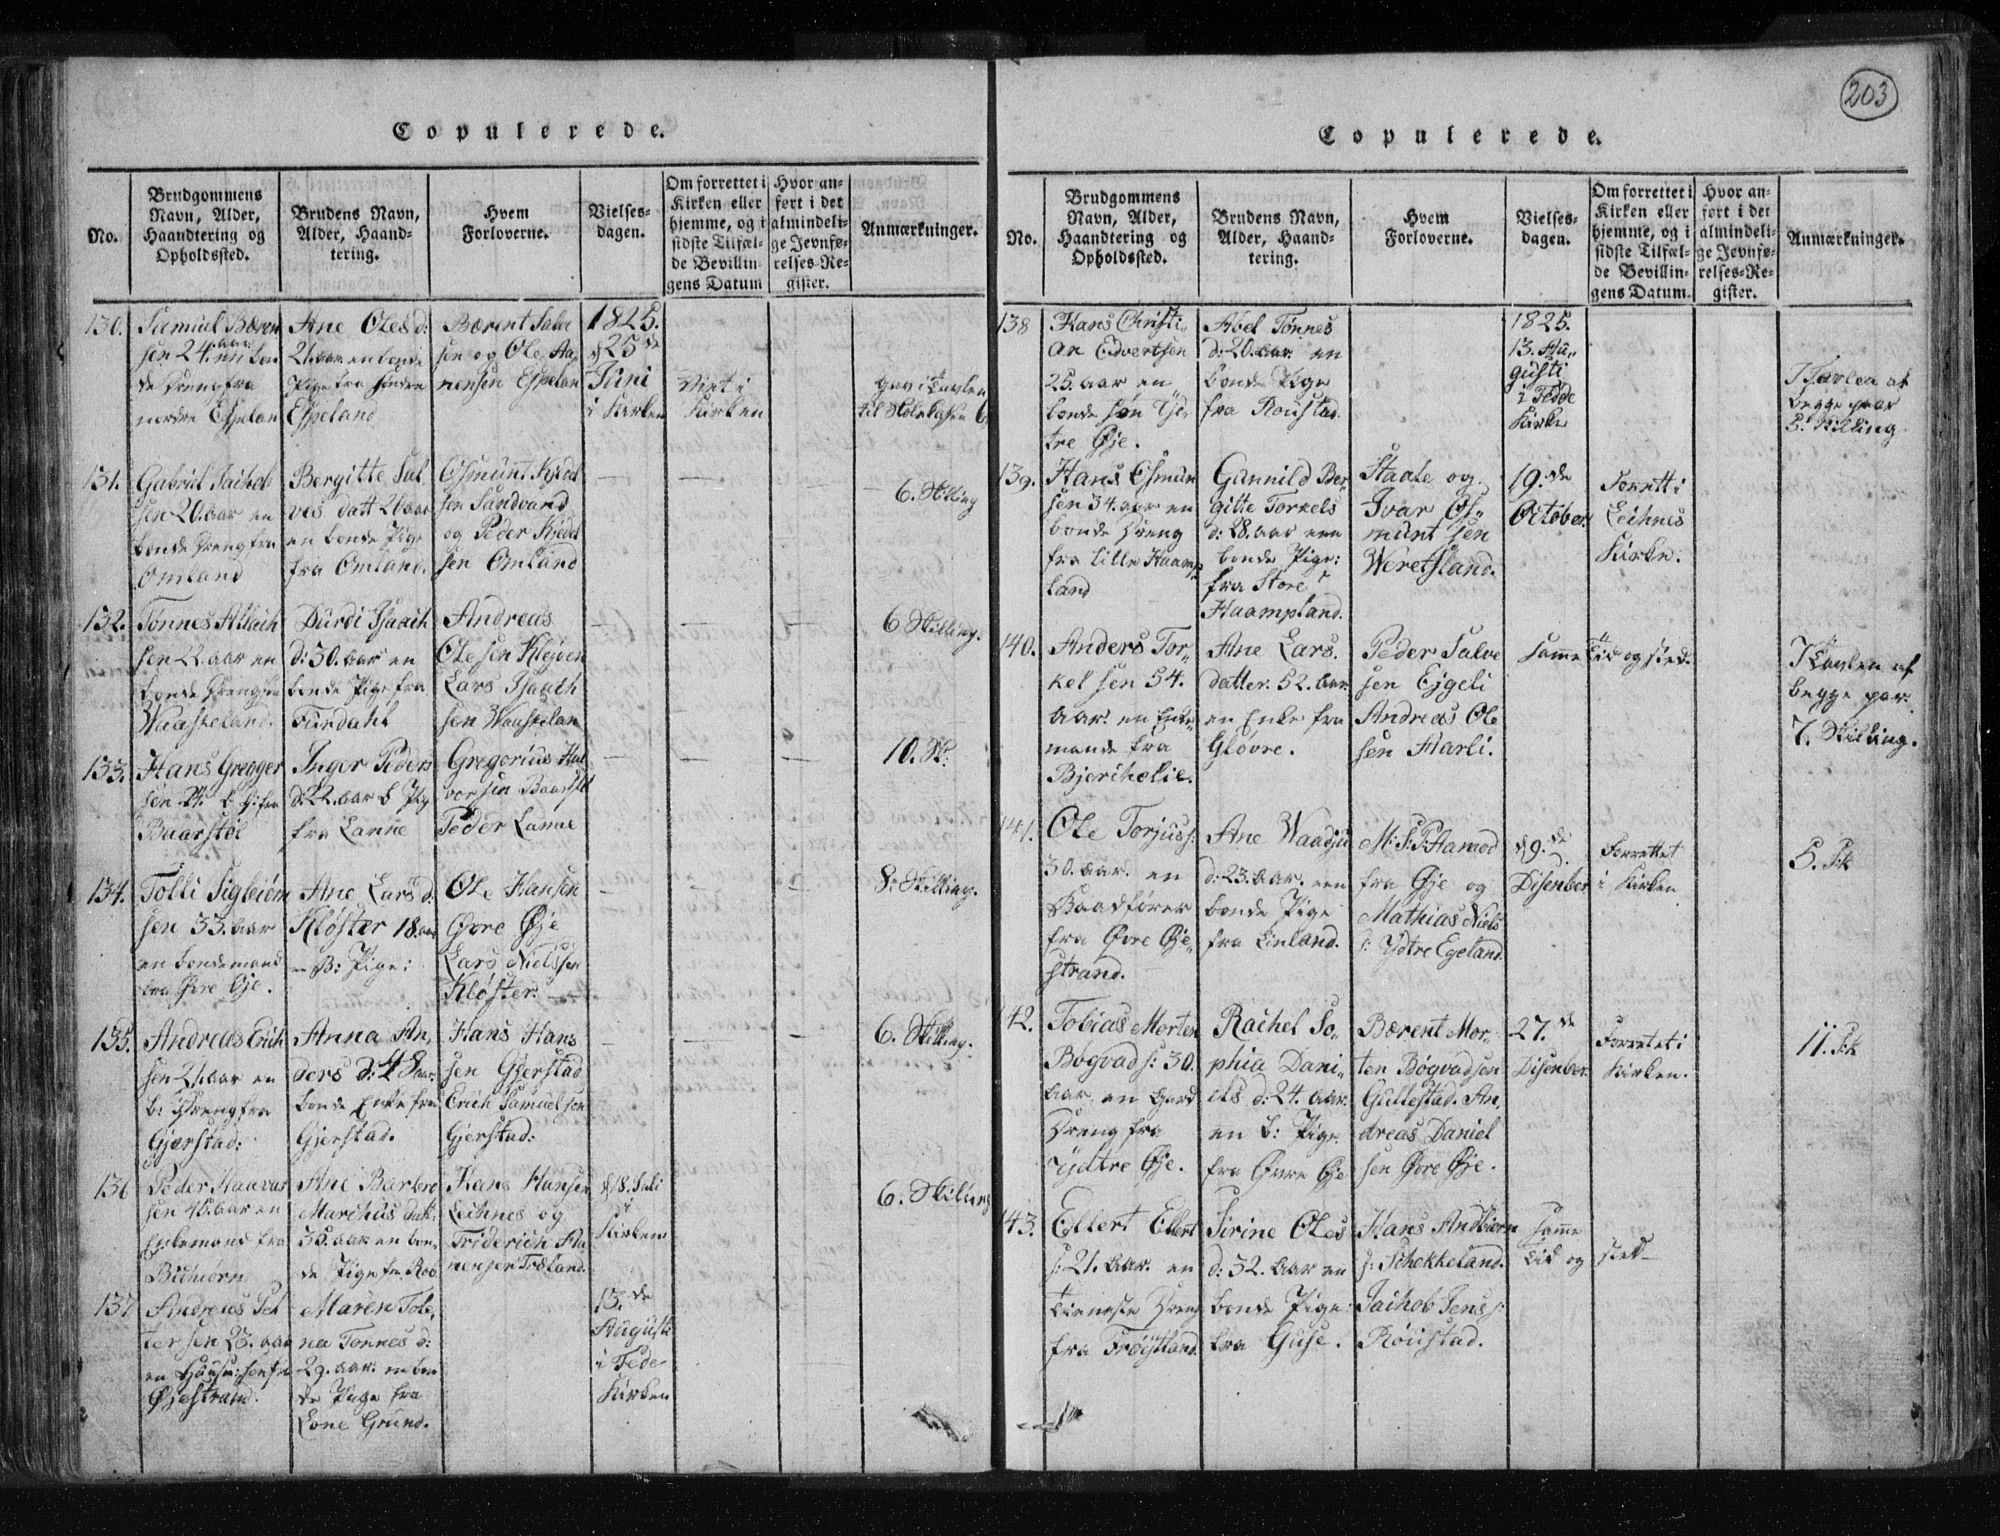 203
Copulerede.
No.
Brudgommens
Navn, Alder,
Haandtering og
Opholdssted.
Brudens Navn,
Alder, Haand-
tering.
Hvem
Forloverne.
Vielses-
dagen.
Om forrettet i
Kirken eller
hjemme, og i
sidste Tilfæl-
de Bevillin-
gens Datum
Hvor an-
ført i det
almindeli-
ge Jevnfø-
relses-Re-
gister.
Anmærkninger.
130.
Samuel Bæren
sen 24. aar en bon
de Dreng fra
nordre Espelan
Ane Olesd:
21. aar en bonde
Pige fra
Espeland
Bærent Salve
sen og Ole Aa-
nensen Espelan
1825.
d 25de
Juni
i Kirken
Viet i
Kirken
gav i Tavlen
til 6
131.
Gabriel Jaihob
sen 20. aar en
bonde Dreng fra
Omland
Bergitte Sal
ves datt 20 aar
en bonde Pige
fra Omland.
Osmunt Kjedel
sen Sandvand
og Peder Kjedel
sen Omland
6. Skilling
132.
Tønnes Atlach
sen 22. aar en
bonde Dreng fra
Waaskeland.
Durdi Isaach
d: 30. aar en
bonde Pige fra
Furdahl
Andreas
Olesen Kleyven
Lars Isaach
sen Waaskelan
6 Skilling.
133.
Hans Gregger
sen 24. b: D: fra
Baarstøl
Inger Peders
d: 22. aar b Pig
fra Lanne
Gregorius Hal
vorsen Baarstøl
Peder Lanne
10. Sk:
134.
Tolli Sigbiørn
sen 33. aar
en bondemand
fra Øvre Øje.
Ane Larsd.
Kløster 18. aar
en B: Pige:
Ole Hansen
Øvre Øje
Lars Nielssen
Kløster.
8: Skilling.
135.
Andreas Erich
sen 21. aar en
b: Dreng fra
Gjærstad:
Anna An,
ders d: 48 aar.
bonde Enke fra
Gjerstad.
Hans Hans
sen Gjerstad
Erich Samuelsen
Gjerstad:
6. Skilling.
136
Peder Haavar
sen 45. aar en
Enkemand fra
Ane Barbro
Marchus datt:
35. aar en bon-
de Pige fra Roo
Hans Hansen
Leihnes og
Friderich Aa
nensen Træland.
d 18. Juli
i
Kirken
6. Skilling
137
Andreas Pet
ter sen 23. aar
en
Øjestrand.
Maren Tole,
na Tønnes d:
29. aar. en bon
de Pige fra
Lone Grund.
13.de
Augusti
i Fede
Kirken
Copulerede.
No.
Brudgommens
Navn, Alder,
Haandtering og
Opholdssted.
Brudens Navn,
Alder, Haand-
tering.
Hvem
Forloverne.
Vielses-
dagen.
Om forrettet i
Kirken eller
hjemme, og i
sidste Tilfæl-
de Bevillin-
gens Datum.
Hvor an-
ført i det
almindeli-
ge Jevnfø-
relses-Re-
gister.
Anmærkninger.
138
Hans Christi,
an Edvertsen
25. aar en
bonde søn Yd-
tre Øje.
Abel Tønnes
d: 20. aar. en
bonde Pige
fra Roustad.
1825.
13. Au,
gusti
i Fedde
Kirke
I Tavlen af
begge par
5. Skilling.
139.
Hans Esmun
sen 34. aar en
bonde Dreng
fra Lille Haamp
land
Gunnild Ber-
gitte Torkels
d: 28. aar een
bonde Pige:
fra Store
Haampland.
Staale og
Ivar Os,
munt sen
Weretsland.
19.de
October.
Forrett i
Leihnes
Kirke.
140.
Anders Tor,
kel sen 54.
aar. en Enke,
mande fra
Bjerihelie.
Ane Lars.
datter. 52. aar.
en Enke fra
Gløvre.
Peder Salve
sen Ejgeli
Andreas Ole
sen Aarli.
samme Tid og sted.
I Tavlen af
begge par.
7. Skilling.
141.
Ole Torjus s:
30. aar. en
Baadfører
fra Øvre Øje,
strand.
Ane Waadju
d: 23. aar. een
bonde Pige
fra Linland.
M: S: P: Hamod
fra Øje og
Mathias Niels
s: Ydtre Egeland.
d 9.de
Disenber
Forrettet
i Kirken
5. Sk
142.
Tobias Morten
Bøgvad s: 30.
aar. en Gard
Dreng fra
Ydtre Øje.
Rachel So,
phia Dani,
els d: 24. aar.
en b: Pige
fra Øvre Øje
Bærent Mor,
ten Bøgvadsen
Gullestad. An,
dreas Daniel
sen Øvre Øje.
27.de
Disenber.
Forretet i
Kirken.
11. Sk
143.
Ellert Ellert
s: 21. aar. en
tieneste Dreng
fra Frøistland.
Sirine Oles
d: 32. aar en
bonde Pige:
fra Guse.
Hans Andbiørn
s: Schekkeland.
Jaihob Jens s:
Røustad.
samme
Tid og sted